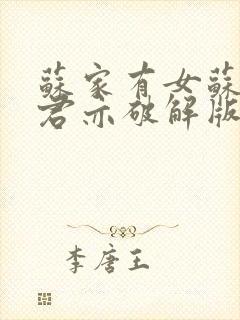 蘇家有女蘇
君亦破解版
李唐王